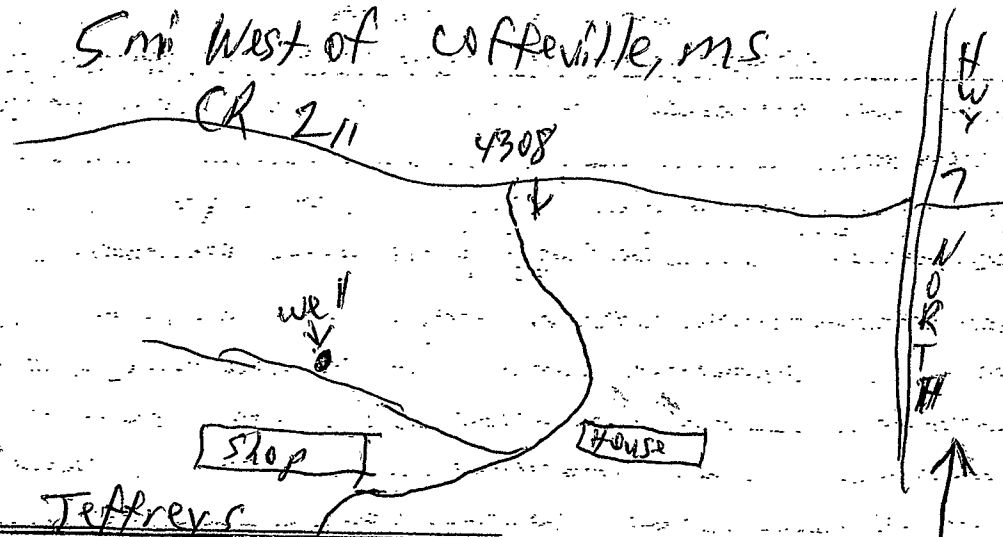 5 mi West of Coffeville, ms
CR 211
4308
HWY 7 NORTH
well
Shop
House
Jeffreys